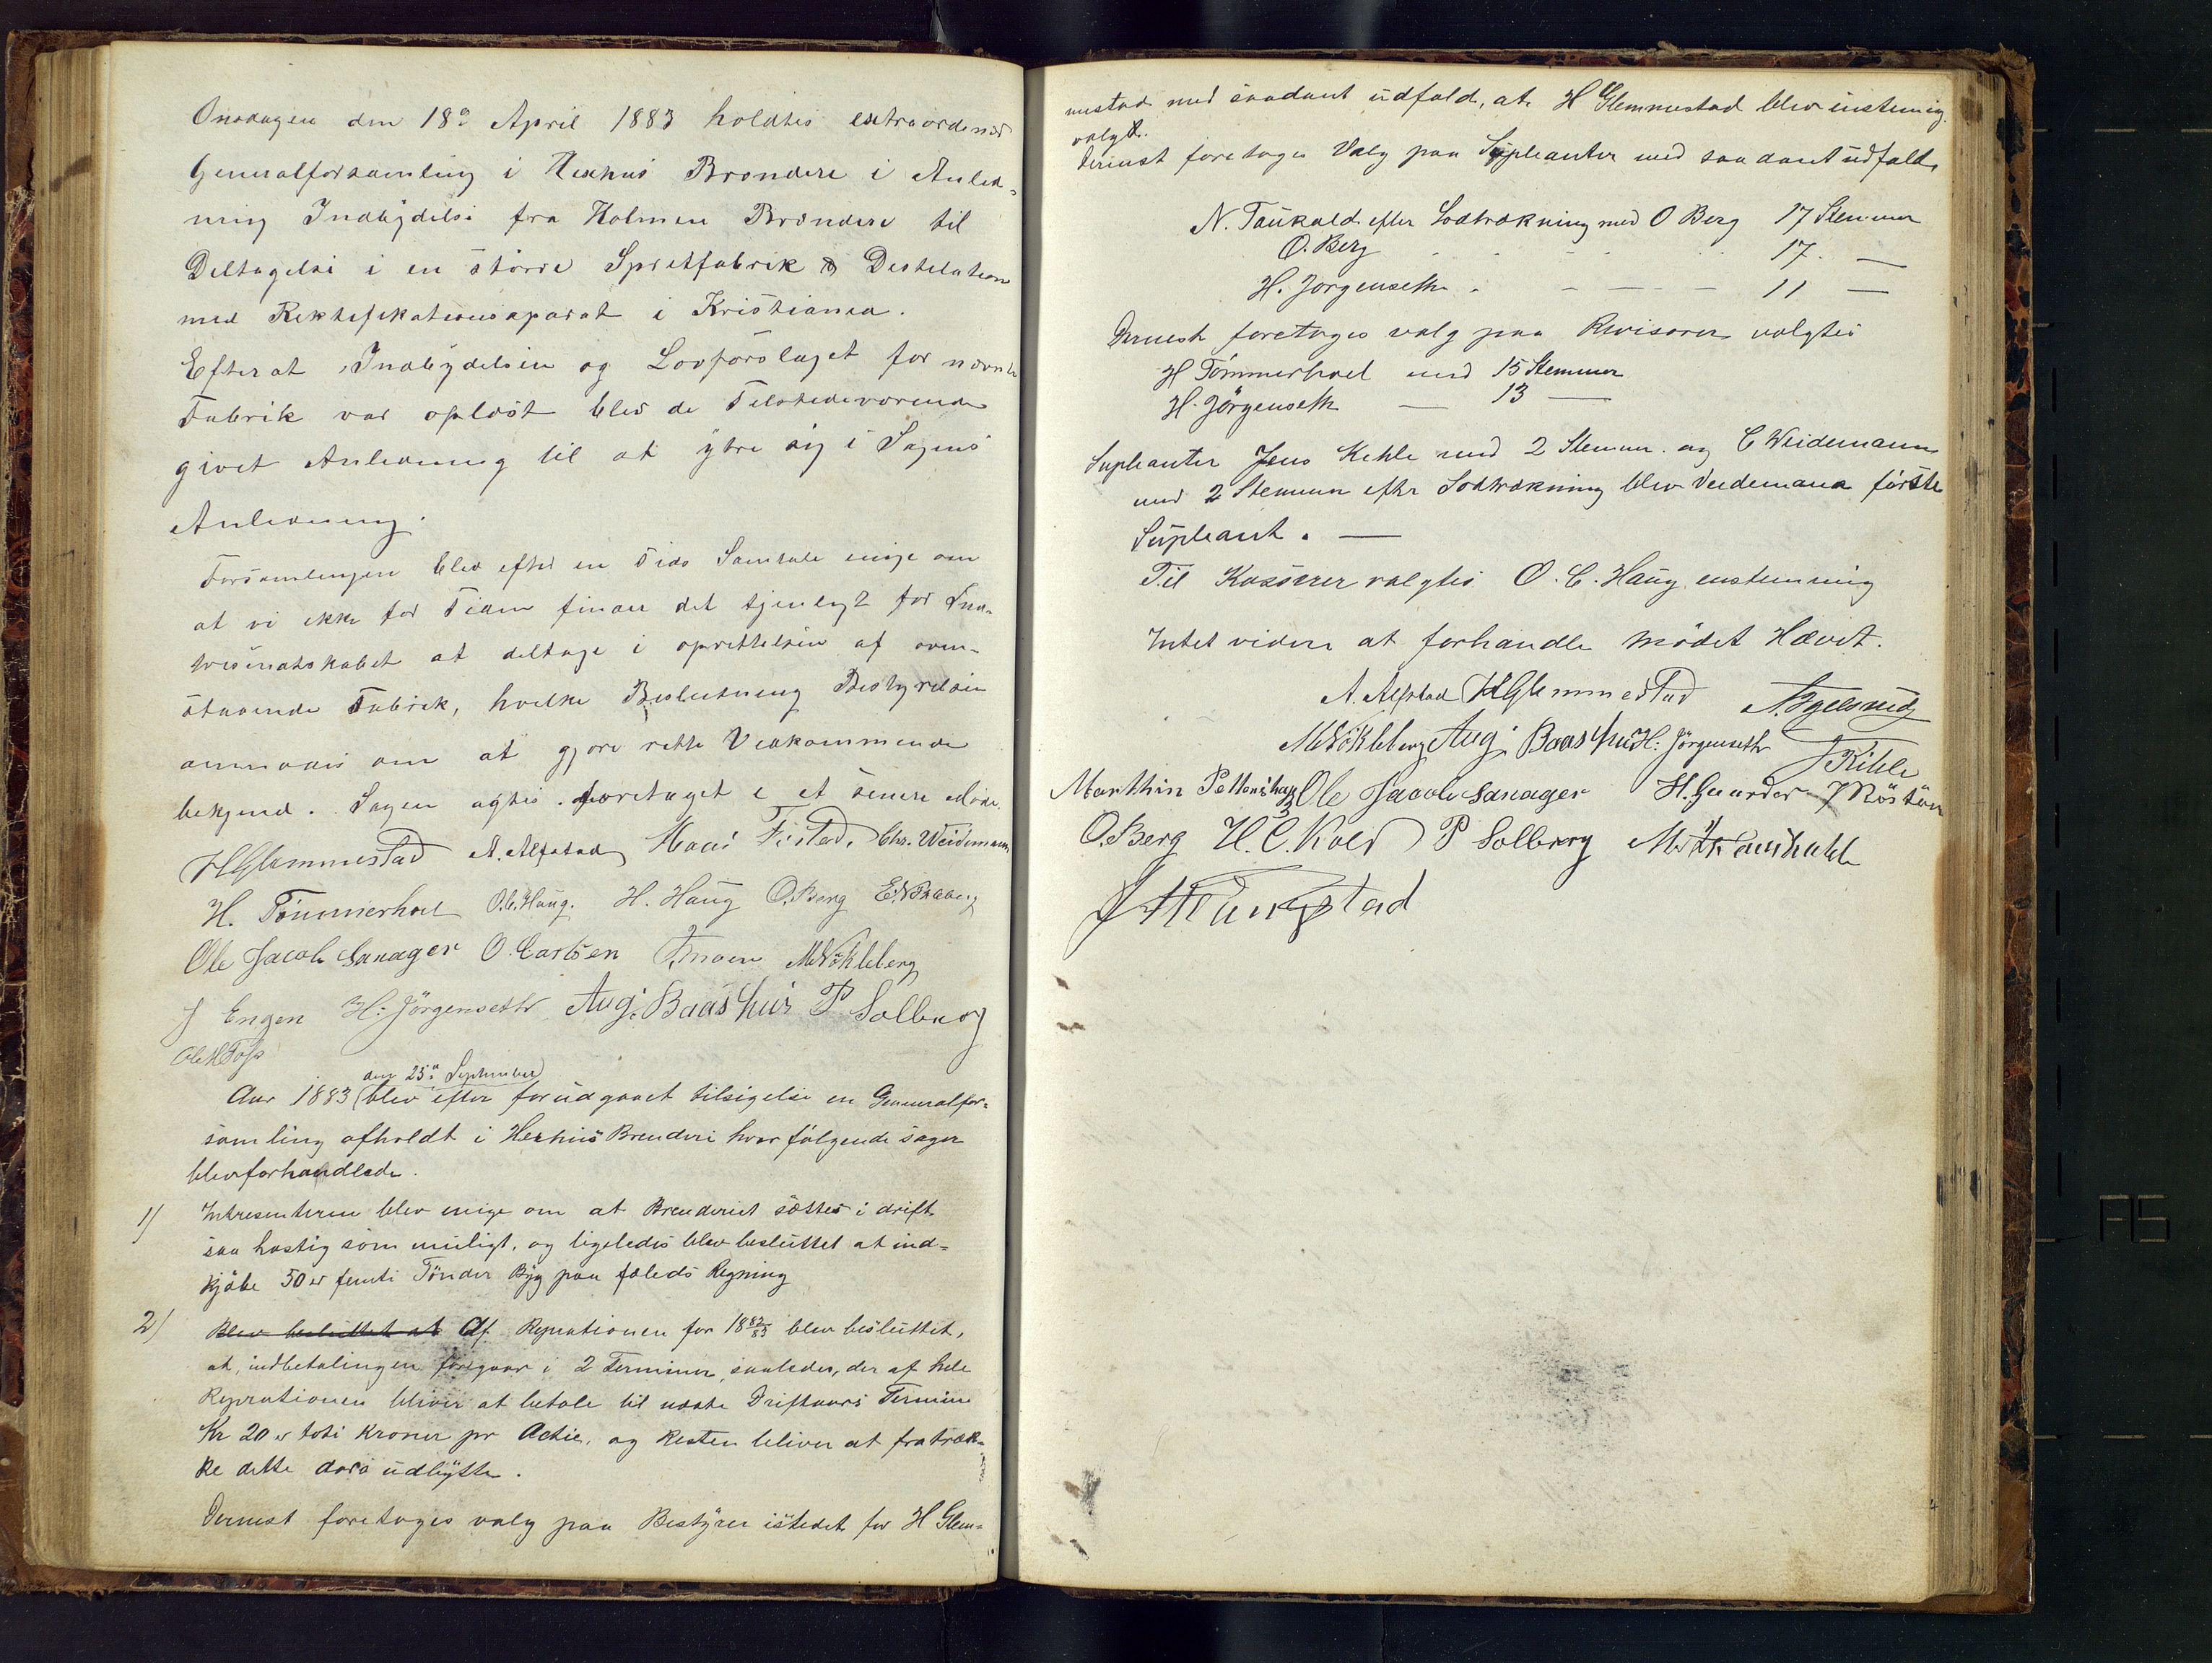 Onsdagen den 18de April 1883 holdtes extraordinær
Generalforsamling i Hexhus Brænderi i Anled-
ning Indbydelse fra Holmen Brænderi til
Deltagelse i en större Spritfabrik & Destilation
med Rektifikationsaparat i Kristiania.
Efter at Indbydelsen og Lovforslaget for nævnte
Fabrik var oplæst blev de Tilstedeværende
givet Anledning til at ytre sig i Sagens
Anledning.
Forsamlingen blev efter en Tids Samtale enige om
at vi ikke for Tiden finder det tjenligt for Ind-
tresentskabet at deltage i oprettelsen af oven-
staaende Fabrik, hvilke Beslutning Bestyrelsen
anmodes om at gjøre rette Vedkommende
bekjend. Sagen agtes foretaget i et senere Møde.
H Glemmestad A. Alfstad Haas Fistad, Chr. Weidemann
H. Tömmerhoel O. C. Haug. H. Haug O. Berg E. N. Braaberg
Ole Jacob Sanager O. Carlsen Moen M Vökleberg
J Engen H: Jörgenseth Aug: Baashus P Solberg
Ole H Foss
den 25de September
Aar 1883 blev efter forudgaaet tilsigelse en Generalfor-
samling afholdt i Hexhus Brenderi hvor fölgende sager
blev forhandlede.
1) Intresenterne blev enige om at Brenderiet sættes i drift
saa hastig som muligt, og ligeledes blev besluttet at ind-
kjöbe 50 er femti Tönder Byg paa fæleds Regning
2) Blev besluttet at Af Repationen for 1882/83 blev besluttet,
at indbetalingen foregaar i 2 Terminer, saaledes, der af hele
Reprationen bliver at betale til næste Driftaars Termin
Kr 20 er toti Kroner pr Actie, og Resten bliver at fratræk-
ke dette aars udbytte.
Dernest foretoges valg paa Bestyrer istedet for H Glem-
mestad med saadant udfald, at H Glemmestad blev enstemig
valgt.
Dernest foretoges Valg paa Supleanter med saadant udfald,
N. Taukald efter Lodtrækning med O Berg 17 Stemmer
O. Berg - - - - 17. —
H. Jørgenseth. - — — — 11 —
Dernest foretoges valg paa Revisorer valgtes
H Tömmerhoel med 15 Stemmer
H. Jörgenseth — 13 —
Supleanter Jens Kehle med 2 Stemmer. og C Weidemann
med 2 Stemmer efter Lodtrækning blev Veidemann förste
Supleant. —
Til Kasserer valgtes O. C. Haug, enstemmig
Intet videre at forhandle Mödet Hævet.
A. Alfstad H Glemmestad
M Vökleberg Aug: Baashus H: Jörgenseth J Kihle
Marthin Pettershagen Ole Jacob Sanager H. Gaarder J Röstöen
O. Berg H. C. Kold P Solberg